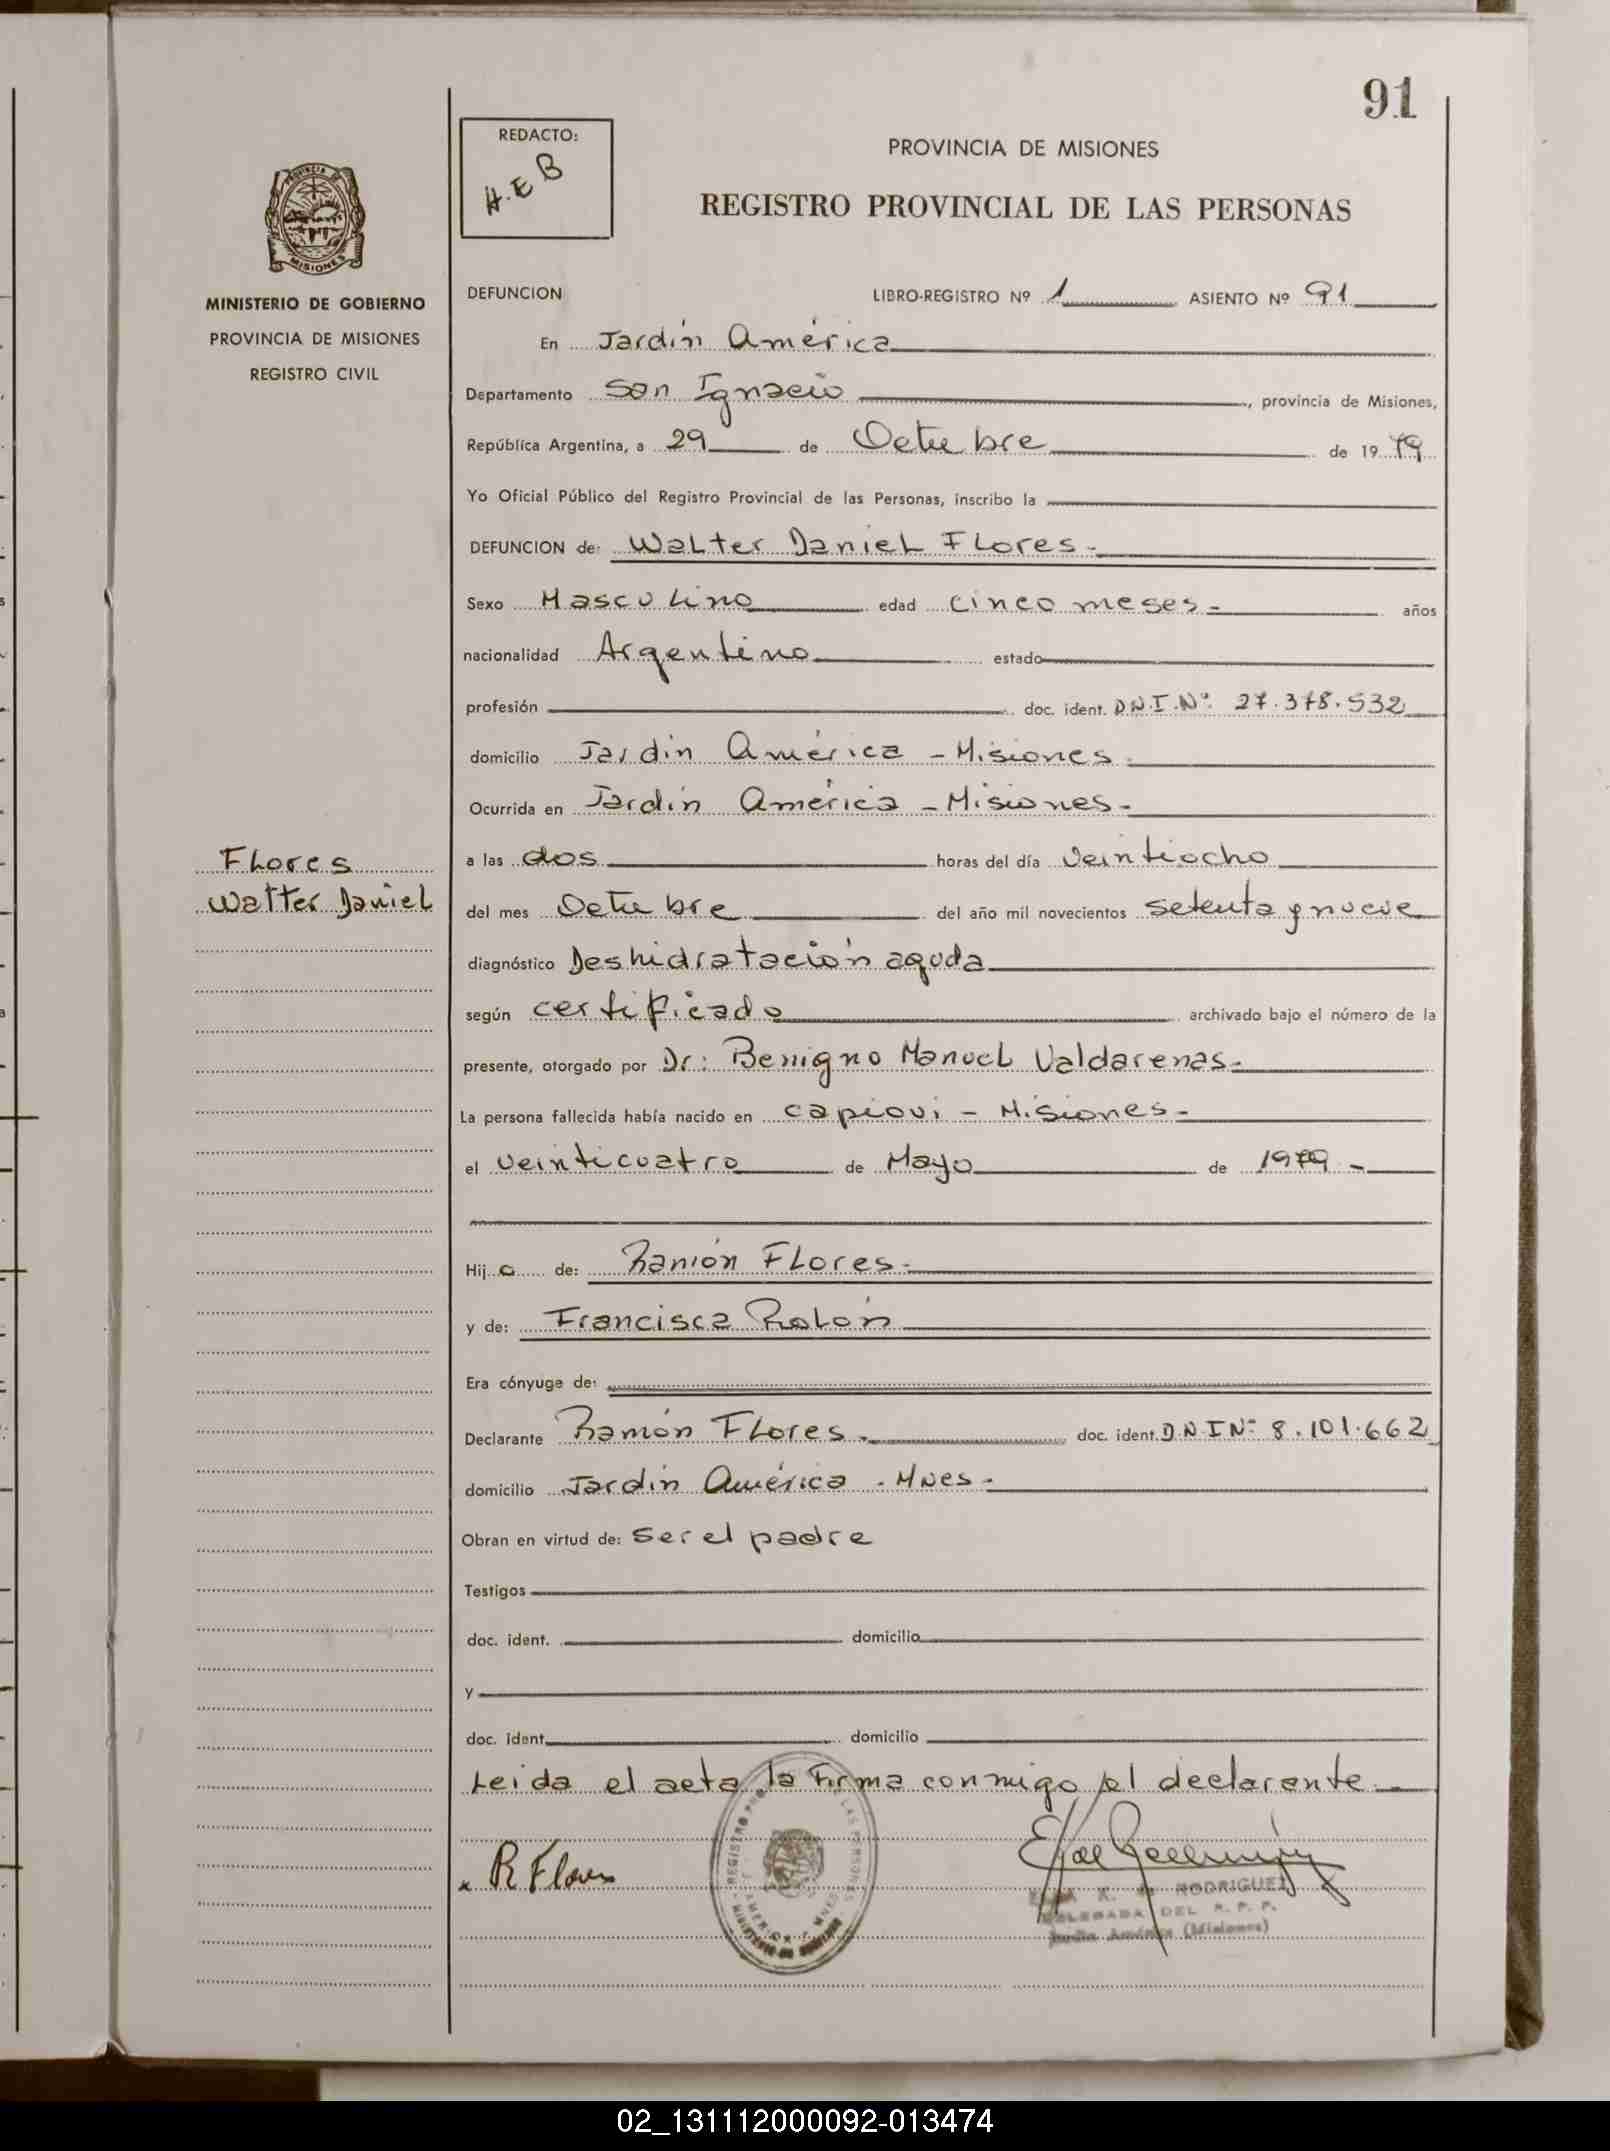 91
REDACTO:
H.E B
PROVINCIA DE MISIONES
REGISTRO PROVINCIAL DE LAS PERSONAS
PROVINCIA DE
MISIONES
MINISTERIO DE GOBIERNO
PROVINCIA DE MISIONES
REGISTRO CIVIL
DEFUNCION LIBRO-REGISTRO Nº 1 ASIENTO Nº 91
En Jardín América
Departamento San Ignacio, provincia de Misiones,
República Argentina, a 29 de Octubre de 1979
Yo Oficial Público del Registro Provincial de las Personas, inscribo la
DEFUNCION de: Walter Daniel Flores-
Sexo Masculino edad cinco meses- años
nacionalidad Argentino estado
profesión doc. ident. D.N.I.Nº 27.378.532
domicilio Jardín América - Misiones-
Ocurrida en Jardín América - Misiones-
Flores
Walter Daniel
a las dos horas del día veintiocho
del mes Octubre del año mil novecientos setenta y nueve
diagnóstico Deshidratación aguda
según certificado archivado bajo el número de la
presente, otorgado por Dr: Benigno Manuel Valdarenas-
La persona fallecida había nacido en capiovi - Misiones-
el veinticuatro de Mayo de 1979-
Hijo de: Ramón Flores-
y de: Francisca Rolón
Era cónyuge de:
Declarante Ramón Flores- doc. ident. D.N.I Nº 8.101.662
domicilio Jardín América - Mnes-
Obran en virtud de: ser el padre
Testigos
doc. ident. domicilio
y
doc. ident. domicilio
Leida el acta la firma conmigo el declarante-
x R Flores
RODRIGUEZ
DELEGADA DEL R. P. P.
Jardín América (Misiones)
02_131112000092-013474